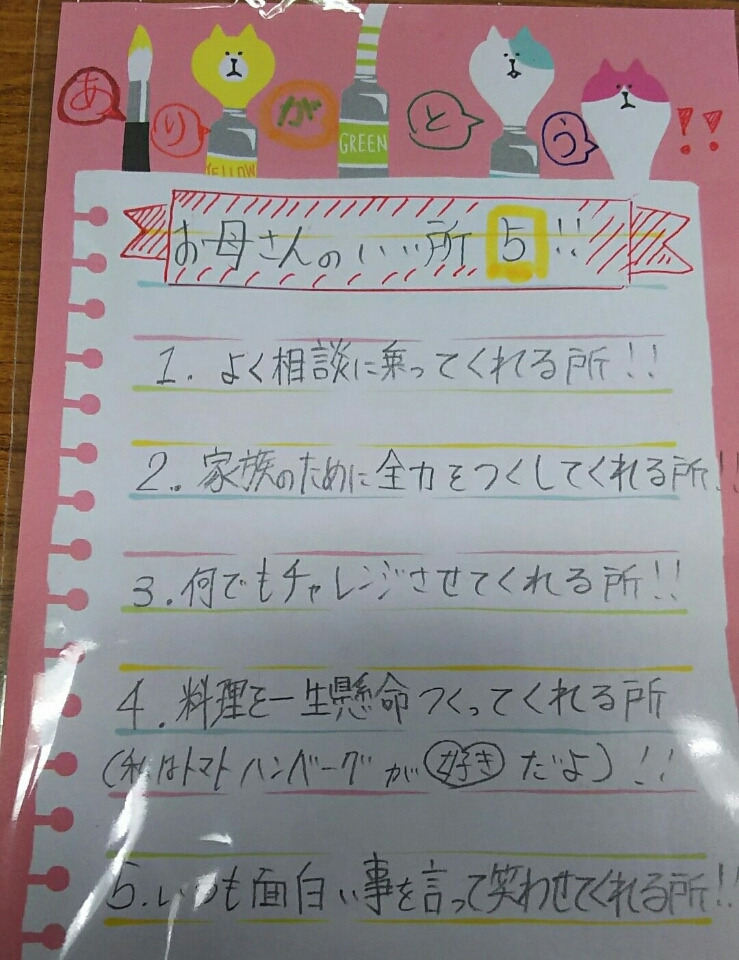 ありがとう!!
YELLOW
GREEN
お母さんのいい所 5!!
1. よく相談に乗ってくれる所!!
2. 家族のために全力をつくしてくれる所!!
3. 何でもチャレンジさせてくれる所!!
4. 料理を一生懸命つくってくれる所
(私はトマトハンバーグが好きだよ)!!
5. いつも面白い事を言って笑わせてくれる所!!